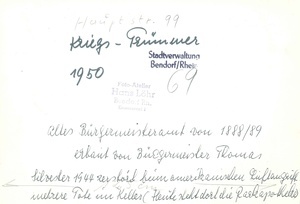 Hauptstr. 99
Kriegs-Trümmer
Stadtverwaltung
Bendorf/Rhein
1950
69
Foto-Atelier
Hans Löhr
Altes Bürgermeisteramt von 1888/89
erbaut von Bürgermeister Thomas
Silvester 1944 zerstört beim amerikanischen Luftangriff
mehrere Tote im Keller (Heute steht dort die Parkapotheke